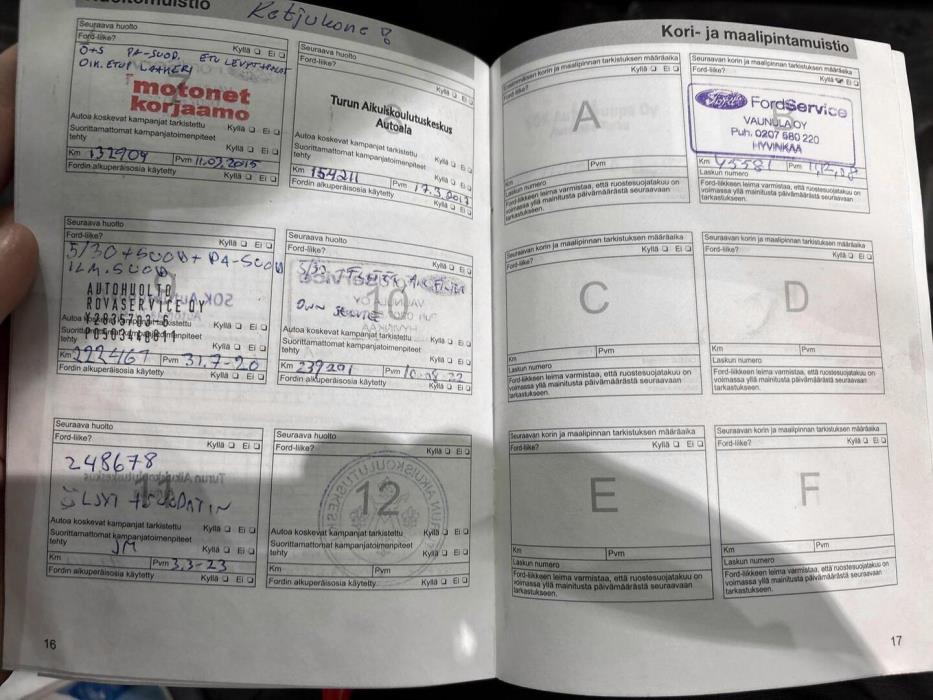 Ketjukone!
Seuraava huolto
Ford-liike? Kyllä Ei
Ö+S PA-SUOD.
motonet
korjaamo
Autoa koskevat kampanjat tarkistettu Kyllä Ei
Suorittamattomat kampanjatoimenpiteet
tehty Kyllä Ei
Km 132909 Pvm
Fordin alkuperäisosia käytetty Kyllä Ei
Seuraava huolto
Ford-liike? Kyllä Ei
Turun Aikuiskoulutuskeskus
Autoala
Autoa koskevat kampanjat tarkistettu Kyllä Ei
Suorittamattomat kampanjatoimenpiteet
tehty Kyllä Ei
Km 154211 Pvm
Fordin alkuperäisosia käytetty Kyllä Ei
Seuraava huolto
Ford-liike? Kyllä Ei
5/30 + SUOD + PA-SUOD
ILM.SUOD
AUTOHUOLTO
ROVASERVICE OY
Autoa koskevat kampanjat tarkistettu Kyllä Ei
Suorittamattomat kampanjatoimenpiteet
tehty Kyllä Ei
Km 223461 Pvm 31.7-20
Fordin alkuperäisosia käytetty Kyllä Ei
Seuraava huolto
Ford-liike? Kyllä Ei
10
OWN SERVICE
Autoa koskevat kampanjat tarkistettu Kyllä Ei
Suorittamattomat kampanjatoimenpiteet
tehty Kyllä Ei
Km 239201 Pvm 10.08.22
Fordin alkuperäisosia käytetty Kyllä Ei
Seuraava huolto
Ford-liike? Kyllä Ei
248678
11
Autoa koskevat kampanjat tarkistettu Kyllä Ei
Suorittamattomat kampanjatoimenpiteet
tehty JM Kyllä Ei
Km Pvm 3.3-23
Fordin alkuperäisosia käytetty Kyllä Ei
Seuraava huolto
Ford-liike? Kyllä Ei
12
Autoa koskevat kampanjat tarkistettu Kyllä Ei
Suorittamattomat kampanjatoimenpiteet
tehty Kyllä Ei
Km Pvm
Fordin alkuperäisosia käytetty Kyllä Ei
16
Kori- ja maalipintamuistio
Seuraavan korin ja maalipinnan tarkistuksen määräaika
Ford-liike? Kyllä Ei
A
Km Pvm
Laskun numero
Ford-liikkeen leima varmistaa, että ruostesuojatakuu on
voimassa yllä mainitusta päivämäärästä seuraavaan
tarkastukseen.
Seuraavan korin ja maalipinnan tarkistuksen määräaika
Ford-liike? Kyllä Ei
B
Ford FordService
VAUNULA OY
Puh. 0207 680 220
HYVINKÄÄ
Km 45581 Pvm
Laskun numero
Ford-liikkeen leima varmistaa, että ruostesuojatakuu on
voimassa yllä mainitusta päivämäärästä seuraavaan
tarkastukseen.
Seuraavan korin ja maalipinnan tarkistuksen määräaika
Ford-liike? Kyllä Ei
C
Km Pvm
Laskun numero
Ford-liikkeen leima varmistaa, että ruostesuojatakuu on
voimassa yllä mainitusta päivämäärästä seuraavaan
tarkastukseen.
Seuraavan korin ja maalipinnan tarkistuksen määräaika
Ford-liike? Kyllä Ei
D
Km Pvm
Laskun numero
Ford-liikkeen leima varmistaa, että ruostesuojatakuu on
voimassa yllä mainitusta päivämäärästä seuraavaan
tarkastukseen.
Seuraavan korin ja maalipinnan tarkistuksen määräaika
Ford-liike? Kyllä Ei
E
Km Pvm
Laskun numero
Ford-liikkeen leima varmistaa, että ruostesuojatakuu on
voimassa yllä mainitusta päivämäärästä seuraavaan
tarkastukseen.
Seuraavan korin ja maalipinnan tarkistuksen määräaika
Ford-liike? Kyllä Ei
F
Km Pvm
Laskun numero
Ford-liikkeen leima varmistaa, että ruostesuojatakuu on
voimassa yllä mainitusta päivämäärästä seuraavaan
tarkastukseen.
17